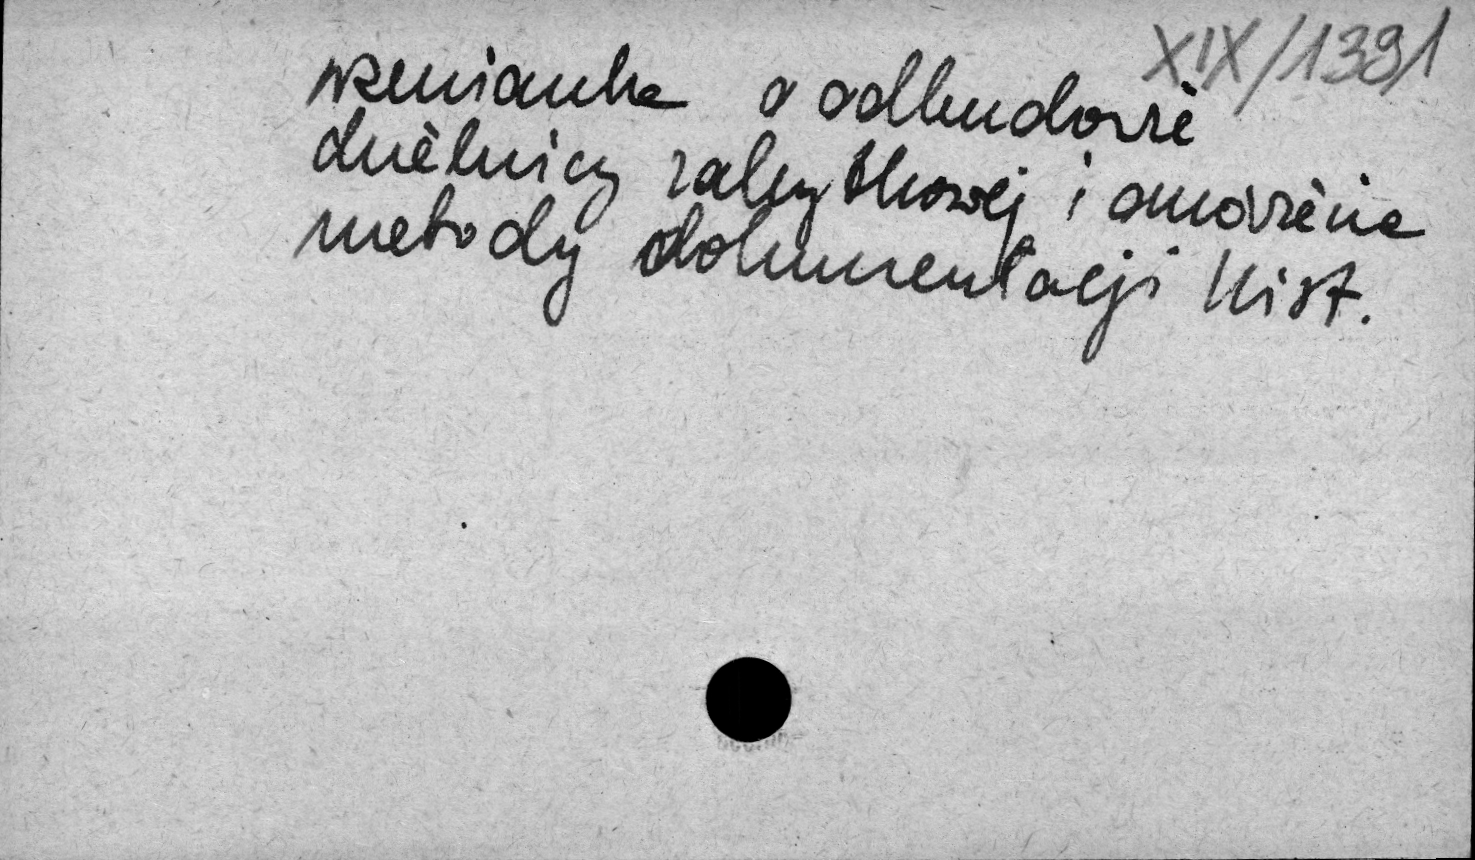 XIX/1391
wzmianka o odbudowie
dzielnicy zabytkowej i omówienie
metody dokumentacji hist.